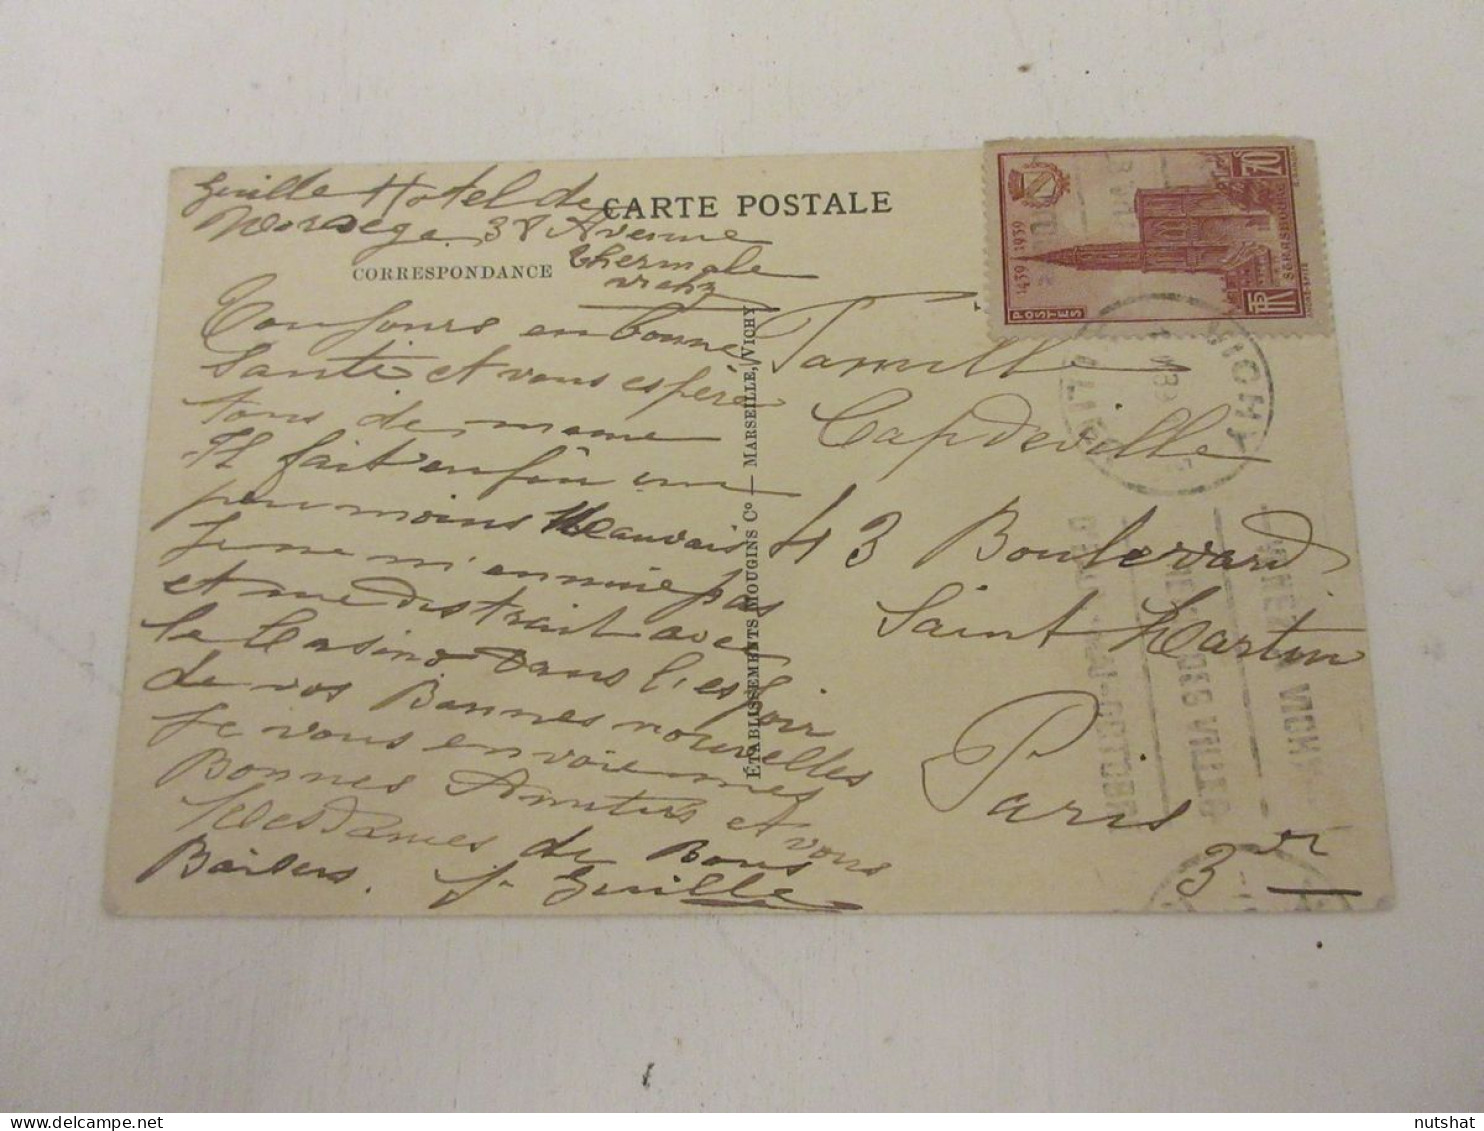 Guille Hotel de
Norvège. 38 Avenue
Thermale
Vichy
CARTE POSTALE
CORRESPONDANCE
Toujours en bonne
Santé et vous espère
tous de même
Il fait enfin un
peu moins Mauvais
Je ne m'ennuie pas
et me distrait avec
le Casino dans l'espoir
de vos Bonnes nouvelles
Je vous envoie mes
Bonnes Amitiés et vous
Mesdames de Bons
Baisers. J. Guille
ÉTABLISSEMENTS MOUGINS Cº — MARSEILLE, VICHY
Famille
Capdeville
43 Boulevard
Saint Martin
Paris
3
POSTES
1439 1939
STRASBOURG
70
VICHY
ALLIER
VICHY
DES VILLES